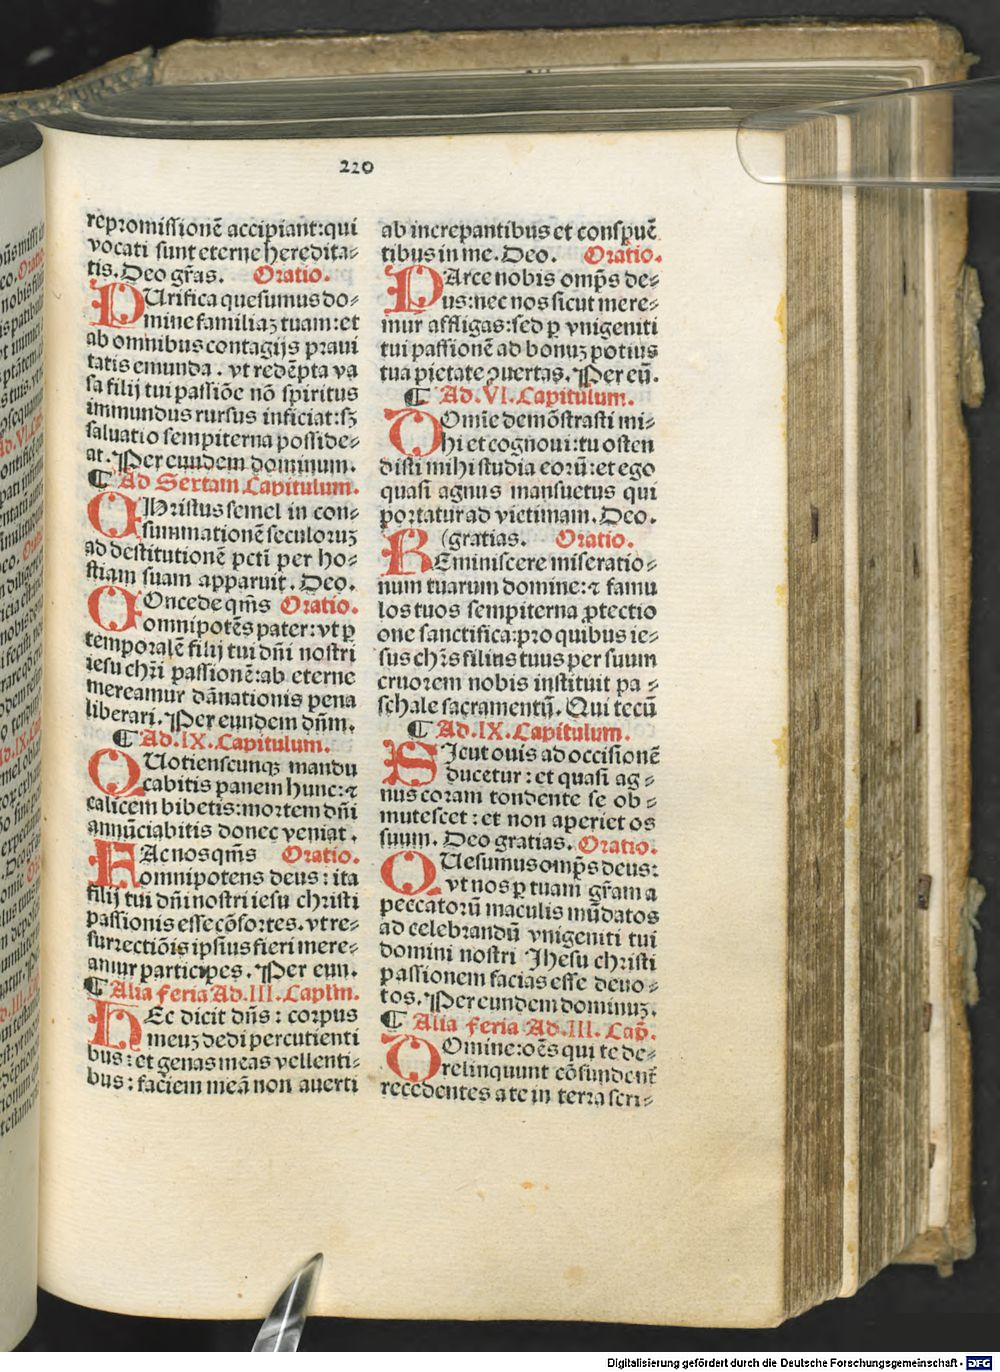 220
repromissionē accipiant:qui
vocati sunt eterne heredita⸗
tis. Deo gr̄as. Oratio.
PUrifica quesumus do⸗
mine familiaꝫ tuam:et
ab omnibus contagijs praui
tatis emunda. vt redēpta va
sa filij tui passiōe nō spiritus
immundus rursus inficiat:sꝫ
saluatio sempiterna posside⸗
at. Per eundem dominum.
¶ Ad Sextam Capitulum.
CHristus semel in con⸗
summationē seculoruꝫ
ad destitutionē pcti per ho⸗
stiam suam apparuit. Deo.
COncede qm̄s Oratio.
omnipotēs pater:vt ꝑ
temporalē filij tui dn̄i nostri
iesu chr̄i passionē:ab eterne
mereamur dānationis pena
liberari. Per eundem dn̄m.
¶ Ad. IX. Capitulum.
QUotienscunqꝫ mandu
cabitis panem hunc:⁊
calicem bibetis:mortem dn̄i
annūciabitis donec veniat.
FAc nos qm̄s Oratio.
omnipotens deus: ita
filij tui dn̄i nostri iesu christi
passionis esse cōsortes. vt re⸗
surrectiōis ipsius fieri mere⸗
amur participes. Per eun.
¶ Alia feria Ad. III. Caplm.
HEc dicit dn̄s: corpus
meuꝫ dedi percutienti
bus: et genas meas vellenti⸗
bus: faciem meā non auerti
ab increpantibus et conspuē
tibus in me. Deo. Oratio.
PArce nobis omp̄s de⸗
us:nec nos sicut mere⸗
mur affligas:sed ꝑ vnigeniti
tui passionē ad bonuꝫ potius
tua pietate ꝯuertas. Per eū.
¶ Ad. VI. Capitulum.
DOmīe demōstrasti mi⸗
hi et cognoui:tu osten
disti mihi studia eorū:et ego
quasi agnus mansuetus qui
portatur ad victimam. Deo.
(gratias. Oratio.
REminiscere miseratio⸗
num tuarum domine:⁊ famu
los tuos sempiterna ꝓtectio
one sanctifica:pro quibus ie⸗
sus chr̄s filius tuus per suum
cruorem nobis instituit pa⸗
schale sacramentū. Qui tecū
¶ Ad. IX. Capitulum.
SIcut ouis ad occisionē
ducetur: et quasi ag⸗
nus coram tondente se ob⸗
mutescet: et non aperiet os
suum. Deo gratias. Oratio.
QUesumus omp̄s deus:
vt nos ꝑ tuam gr̄am a
peccatorū maculis mūdatos
ad celebrandū vnigeniti tui
domini nostri Jhesu christi
passionem facias esse deuo⸗
tos. Per eundem dominuꝫ.
¶ Alia feria Ad. III. Cap̄.
DOmine:oēs qui te de⸗
relinquunt cōfundent
recedentes a te in terra scri⸗
Digitalisierung gefördert durch die Deutsche Forschungsgemeinschaft - DFG